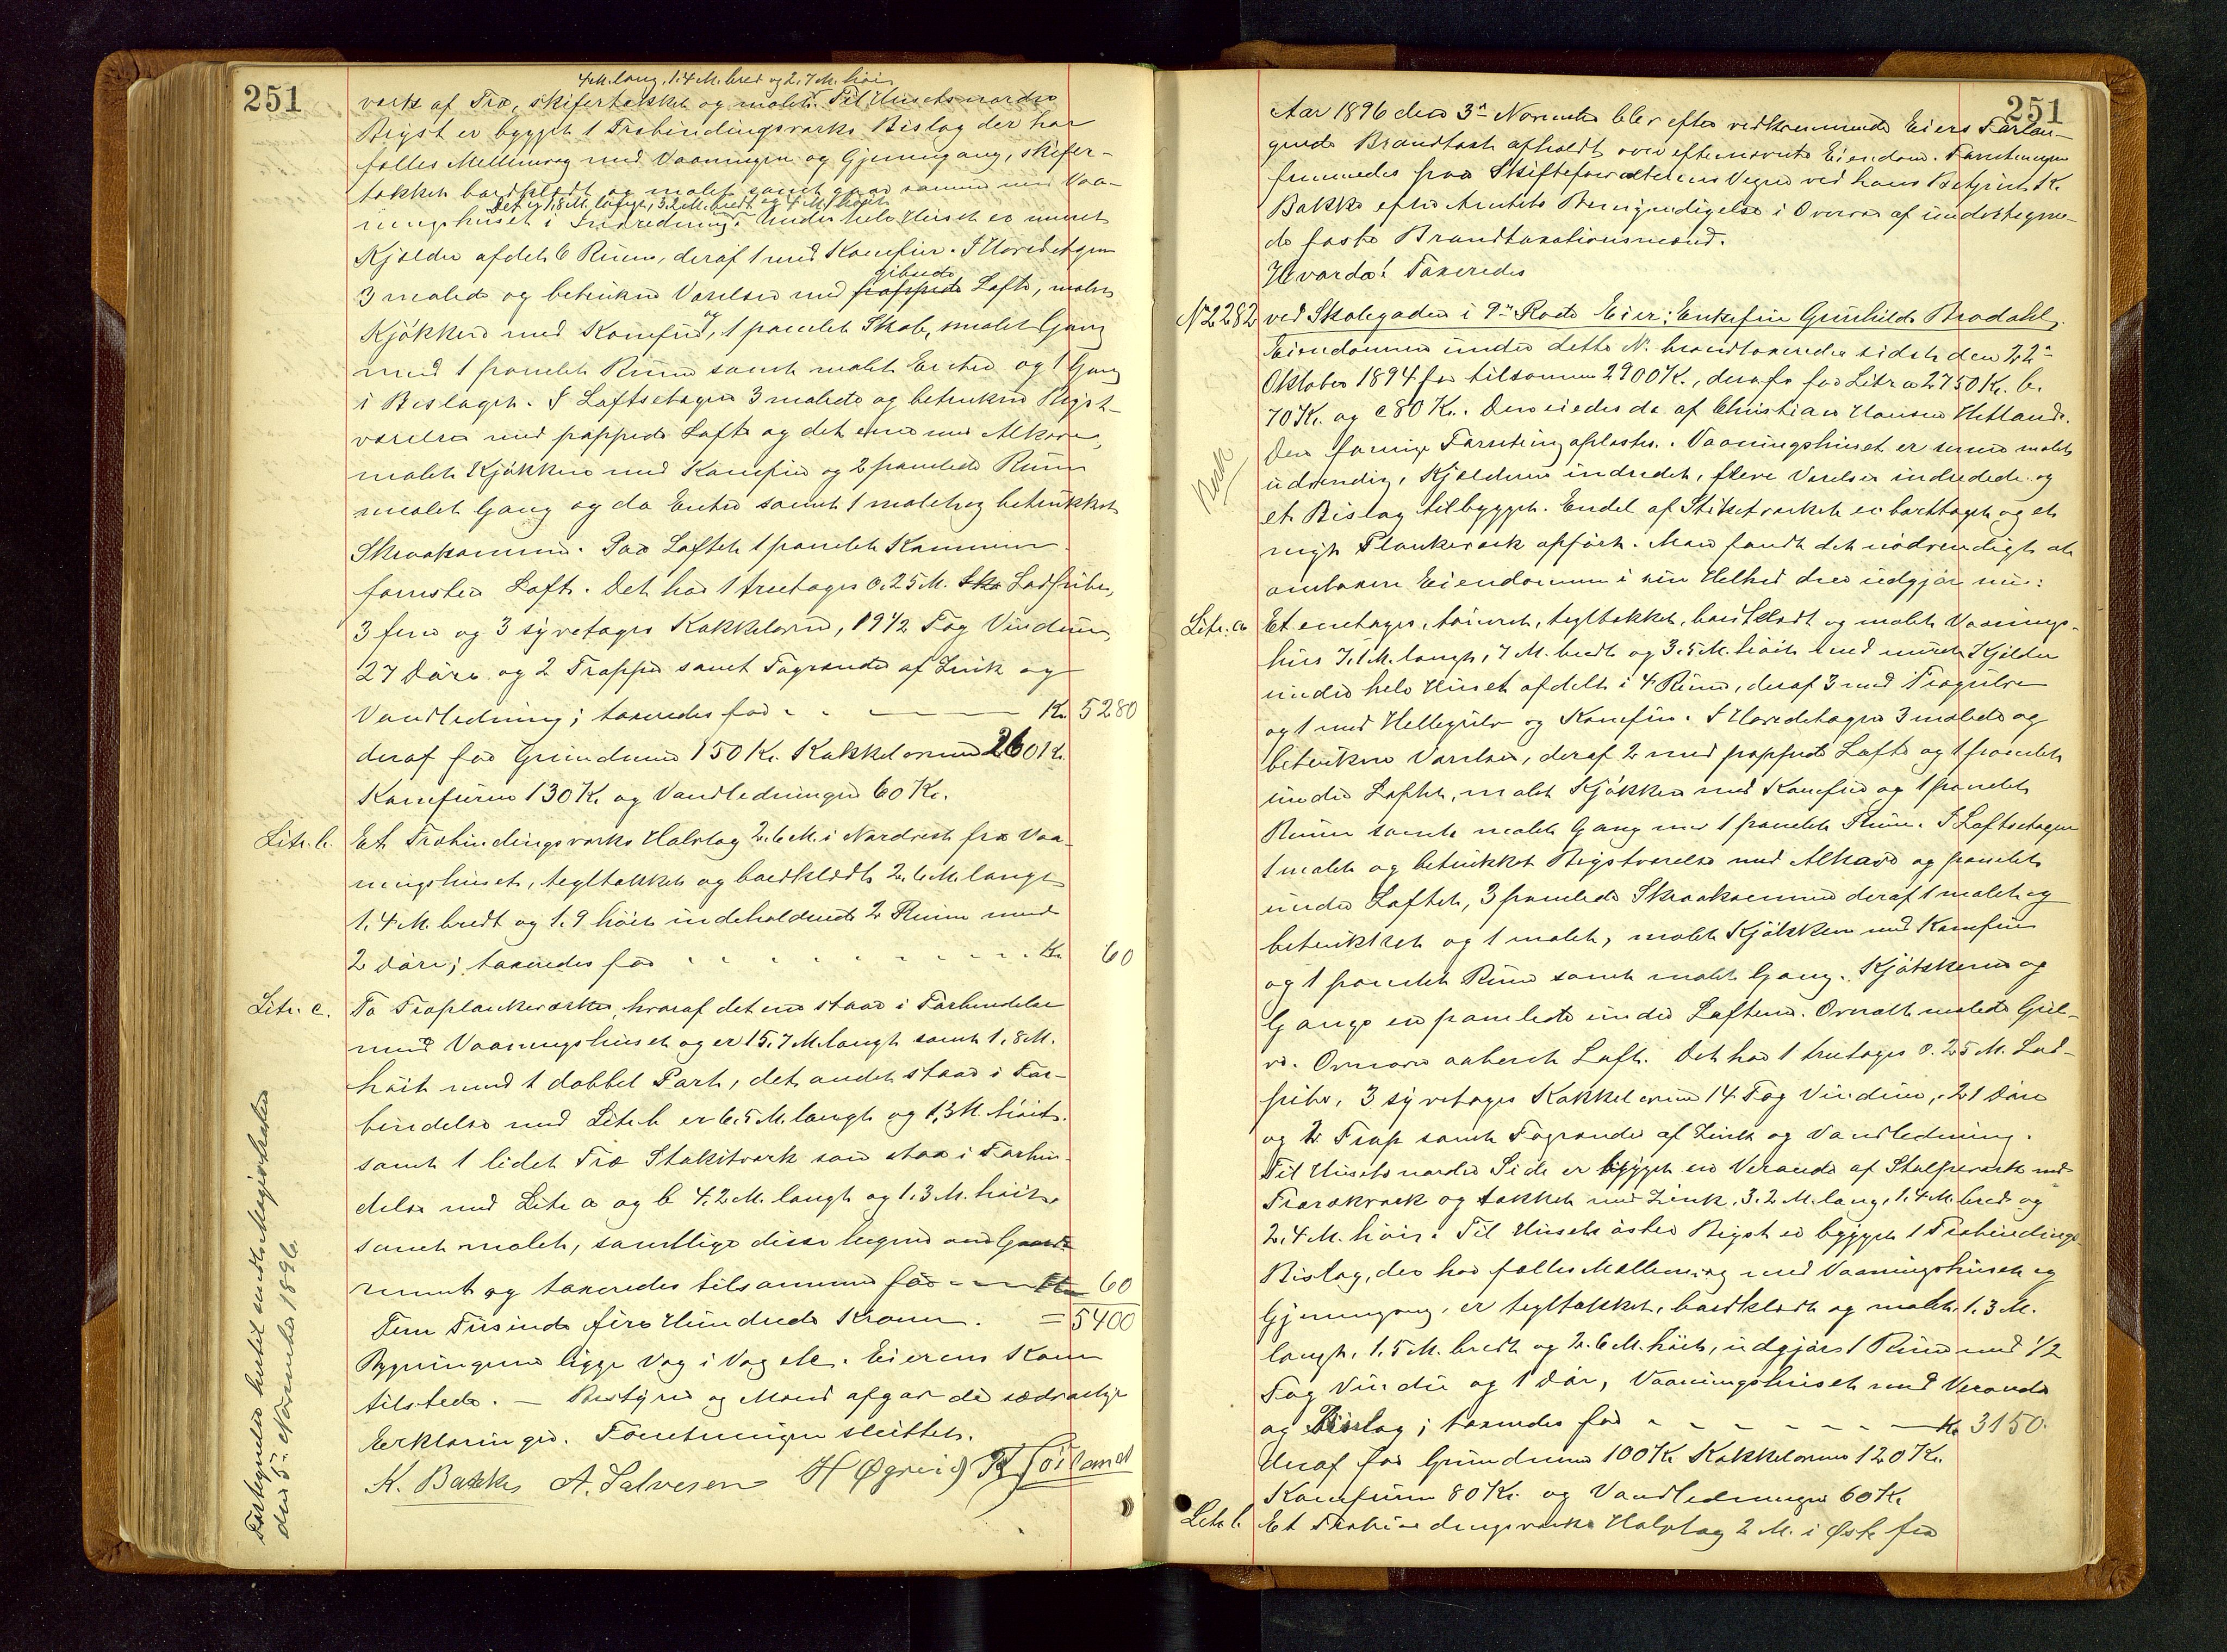 251
4 M. lang, 1.4 M. bred og 2.7 M. høi
værk af Træ, skifertækket og malet. Til Husets nordre
Brÿst er bygget 1 Træbindingsværks Bislag der har
fælles Mellemvæg med Vaaningen og Gjennegang, skifer-
tækket bordklædt og malet samt gaar sammen med Vaa-
Det er 1.8 M. langt, 3.2 M. bredt og 4 M. høit
ningshuset i Indredning. Under hele Huset er muret
Kjælder afdelt 6 Rum, deraf 1 med Komfur. I Hovedetagen
gibsede
3 malede og betrukne Værelser med pappede Lofte, malet
Kjøkken med Komfur, og 1 panelet Skab, malet Gang
med 1 panelet Rum samt malet Entre og 1 Gang
i Bislaget. I Loftsetagen 3 malede og betrukne Brÿst-
værelser med pappede Lofte og det ene med Alkove,
malet Kjøkken med Komfur og 2 panelede Rum
malet Gang og do Entre samt 1 malet og betrukket
Skraakammer. Paa Loftet 1 panelet Kammer
forresten Loft. Det har 1 treetages 0.25 M. Ska Lodpibe,
3 fem og 3 syvetages Kakkelovne, 19 1/2 Fag Vinduer,
27 Døre og 2 Trapper samt Tagrender af Zink og
Vandledning; taxeredes for - - Kr. 5280
deraf for Grundmur 150 Kr. Kakkelovne 260 Kr.
Komfurene 130 Kr. og Vandledningen 60 Kr.
Litr. b. Et Træbindingsværks Halvtag 2.6 M. i Nordvest fra Vaa-
ningshuset, tegltækket og bordklædt 2.6 M. langt
1.4 M. bredt og 1.9 høit indeholdende 2 Rum med
2 Døre; taxeredes for - - - - - - - - Kr. 60
Litr. c. To Træplankeværker, hvoraf det ene staar i Forbindelse
med Vaaningshuset og er 15.7 M. langt samt 1.8 M.
høit med 1 dobbel Port, det andet staar i For-
bindelse med Litr. b er 6.5 M. langt og 1,3 M. høit.
samt 1 lidet Træ Stakitværk som staar i Forbin-
delse med Litr. a og b 4.2 M. langt og 1.3 M. høit
samt malet, samtlige disse hegner om Gaards-
rummet og taxeredes tilsammen for - - Kr. 60
Fem Tusinde fire Hundrede Kroner. = 5400
Bygningerne ligge Væg i Væg etc. Eierens Kone
tilstede. – Bestyrer og Mænd afgav de sædvanlige
Erklæringer. Forretningen sluttet.
K. Bakke A. Salvesen H Øgreid R. Toiland
Fortegnelse hertil sendt Magistraten
den 5. November 1896.
251
Aar 1896 den 3. November blev efter vedkommende Eiers Forlan-
gende Brandtaxt afholdt over eftenævnte Eiendom. Forretningen
fremmedes paa Skifteforvalterens Vegne ved hans Betjent K.
Bakke efter Amtets Bemyndigelse i Overvær af undertegne-
de faste Brandtaxationsmænd.
Hvorda! Taxeredes
No 2282 ved Skolegaden i 9. Rode Eier: Enkefru Gunhilde Brodahl.
Eiendommen under dette No. brandtaxeredes sidst den 22.
Oktober 1894 for tilsammen 2900 Kr., deraf for Litr a 2750 Kr. b.
70 Kr. og c 80 Kr. Den eiedes da af Christian Hansen Hetland.
Den forrige Forretning oplæstes. Vaaningshuset er senere malet
udvendig, Kjælderen indredet, flere Værelser indredede og
et Bislag tilbygget. Endel af Stakitværket er borttaget og et
nyt Plankeværk opført. Man fandt det nødvendigt at
omtaxere Eiendommen i sin Helhed den udgjør nu:
Litr. a Et enetages, tømret, tegltækket, bordklædt og malet Vaanings-
hus 7.1 M. langt, 7 M. bredt og 3.5 M. høit med muret Kjelder
under hele Huset afdelt i 4 Rum, deraf 3 med Trægulve
og 1 med Hellegulv og Komfur. I Hovedetagen 3 malede og
betrukne Værelser, deraf 2 med pappede Lofte og 1 panelet
under Loftet, malet Kjøkken med Komfur og 1 panelet
Rum samt malet Gang med 1 panelet Rum. I Loftsetagen
1 malet og betrukket Brÿstværelse med Alkove og panelet
under Loftet, 3 panelede Skraakammere deraf 1 malet og
betrukket og 1 malet, malet Kjøkken med Komfur
og 1 panelet Rum samt malet Gang. Kjøkkenet og
Gange er panelede under Loftene. Overalt malede Gul-
ve. Ovenover aabent Loft. Det har 1 treetages 0.25 M. Lod-
pibe, 3 syvetages Kakkelovne 14 Fag Vinduer, 21 Døre
og 2 Trap samt Tagrender af Zink og Vandledning.
Til Husets nordre Side er bygget en Veranda af Stolpeværk med
Trærækværk og tækket med Zink, 3.2 M. lang, 1.4 M. bred og
2.4 M. høi. Til Husets østre Brÿst er bygget 1 Træbindings-
Bislag, der har fælles Mellemvæg med Vaaningshuset og
Gjennegang, er tegltækket, bordklædt og malet, 1.3 M.
langt, 1.5 M. bredt og 2.6 M. høit, udgjør 1 Rum med 1/2
Fag Vindue og 1 Dør, Vaaningshuset med Veranda
og Bislag; taxeredes for - - - - - - Kr. 3150.
deraf for Grundmur 100 Kr. Kakkelovne 120 Kr.
Komfurene 80 Kr. og Vandledningen 60 Kr.
Litr. b. Et Træbindingsværks Halvtag 2 M. i Øst fra